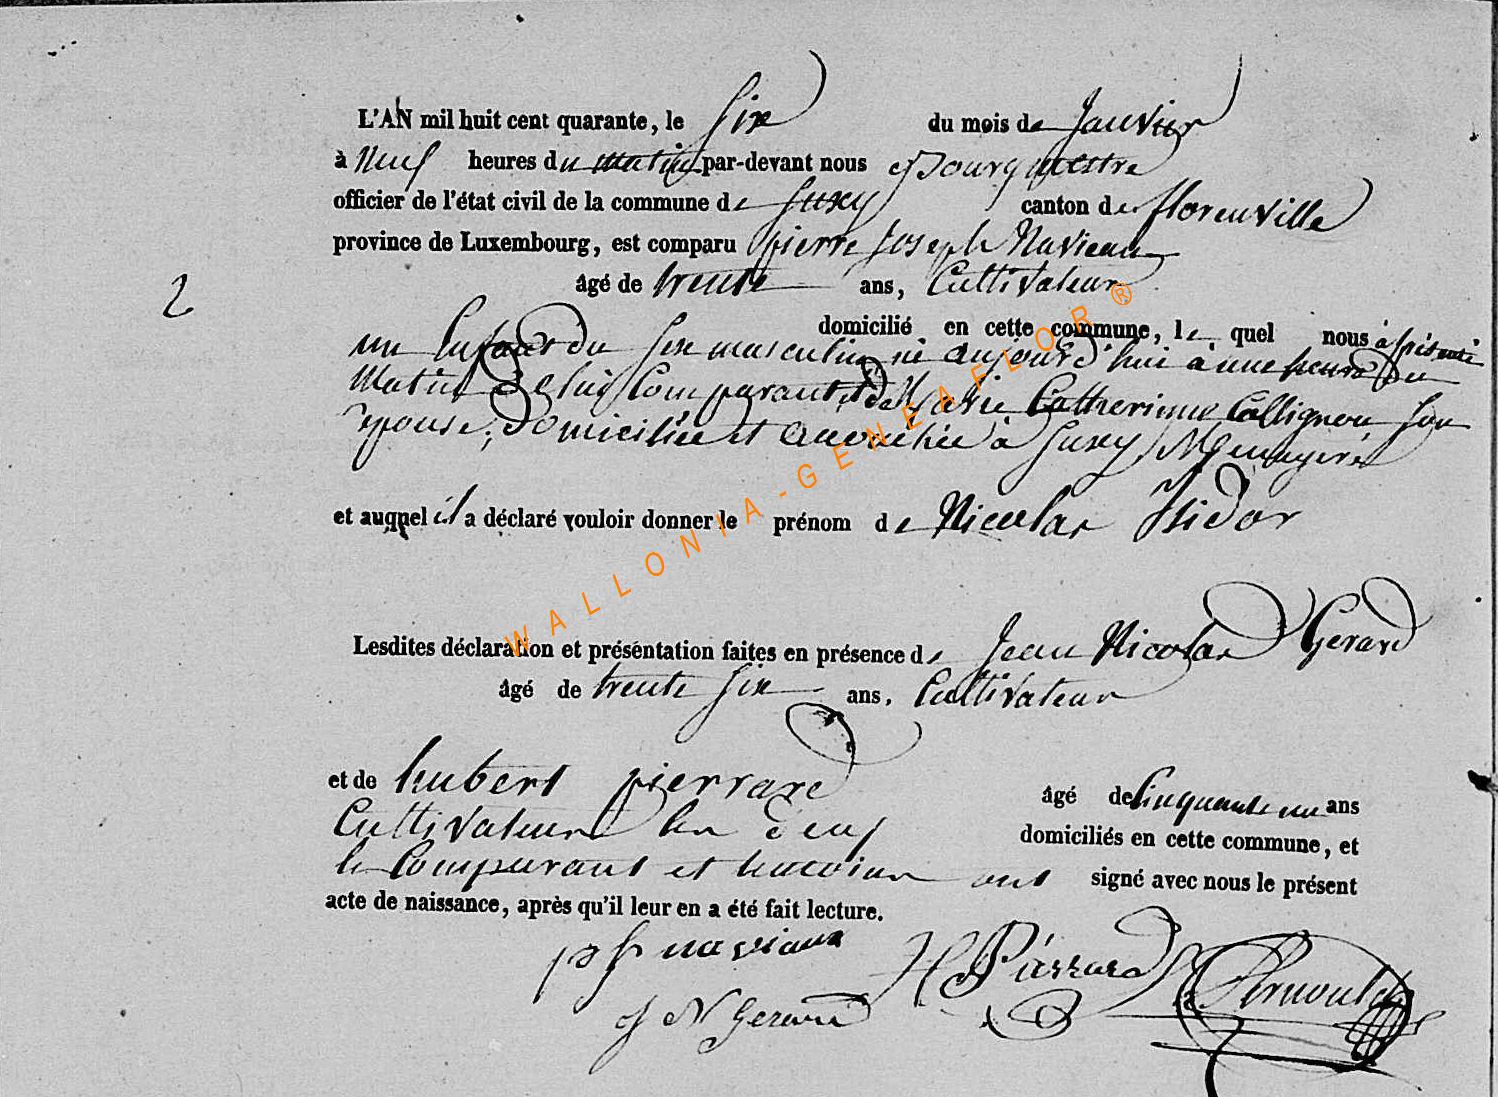 L'AN mil huit cent quarante, le Six du mois de Janvier
à Neuf heures du matin par-devant nous Bourgmestre
officier de l'état civil de la commune de Suxy canton de florenville
province de Luxembourg, est comparu pierre Joseph Naviaux
2
âgé de trente ans, Cultivateur
domicilié en cette commune, le quel nous à présenté
un Enfant du Sexe masculin né aujourd'hui à une heure du
matin de lui Comparant, et de Marie Catherinne Collignon Son
epouse, domiciliée et accouchée à Suxy, Menagere
et auquel il a déclaré vouloir donner le prénom de Nicolas Isidor
WALLONIA-GENEAFLOR®
Lesdites déclaration et présentation faites en présence de Jean Nicolas Gerard
âgé de trente Six ans, Cultivateur
et de hubert pierrard âgé de Cinquante un ans
Cultivateur les deux domiciliés en cette commune, et
le Comparant et temoins ont signé avec nous le présent
acte de naissance, après qu'il leur en a été fait lecture.
p J naviaux H Pierrard Arnould
J N Gerard